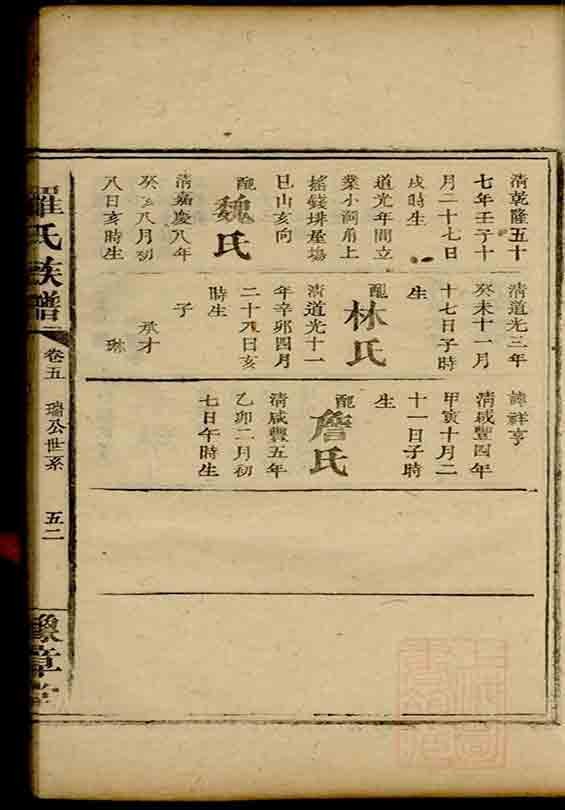 清乾隆五十
七年壬子十
月二十七日
戌時生
道光年間立
業小洞甬上
搖錢埂屋場
巳山亥向
配
魏氏
清嘉慶八年
癸亥八月初
八日亥時生
清道光三年
癸未十一月
十七日子時
生
配
林氏
清道光十一
年辛卯四月
二十九日亥
時生
子
承才
琳
諱祥亨
清咸豐四年
甲寅十月二
十一日子時
生
配
詹氏
清咸豐五年
乙卯二月初
七日午時生
羅氏族譜
卷五
瑞公世系
五二
豫章堂